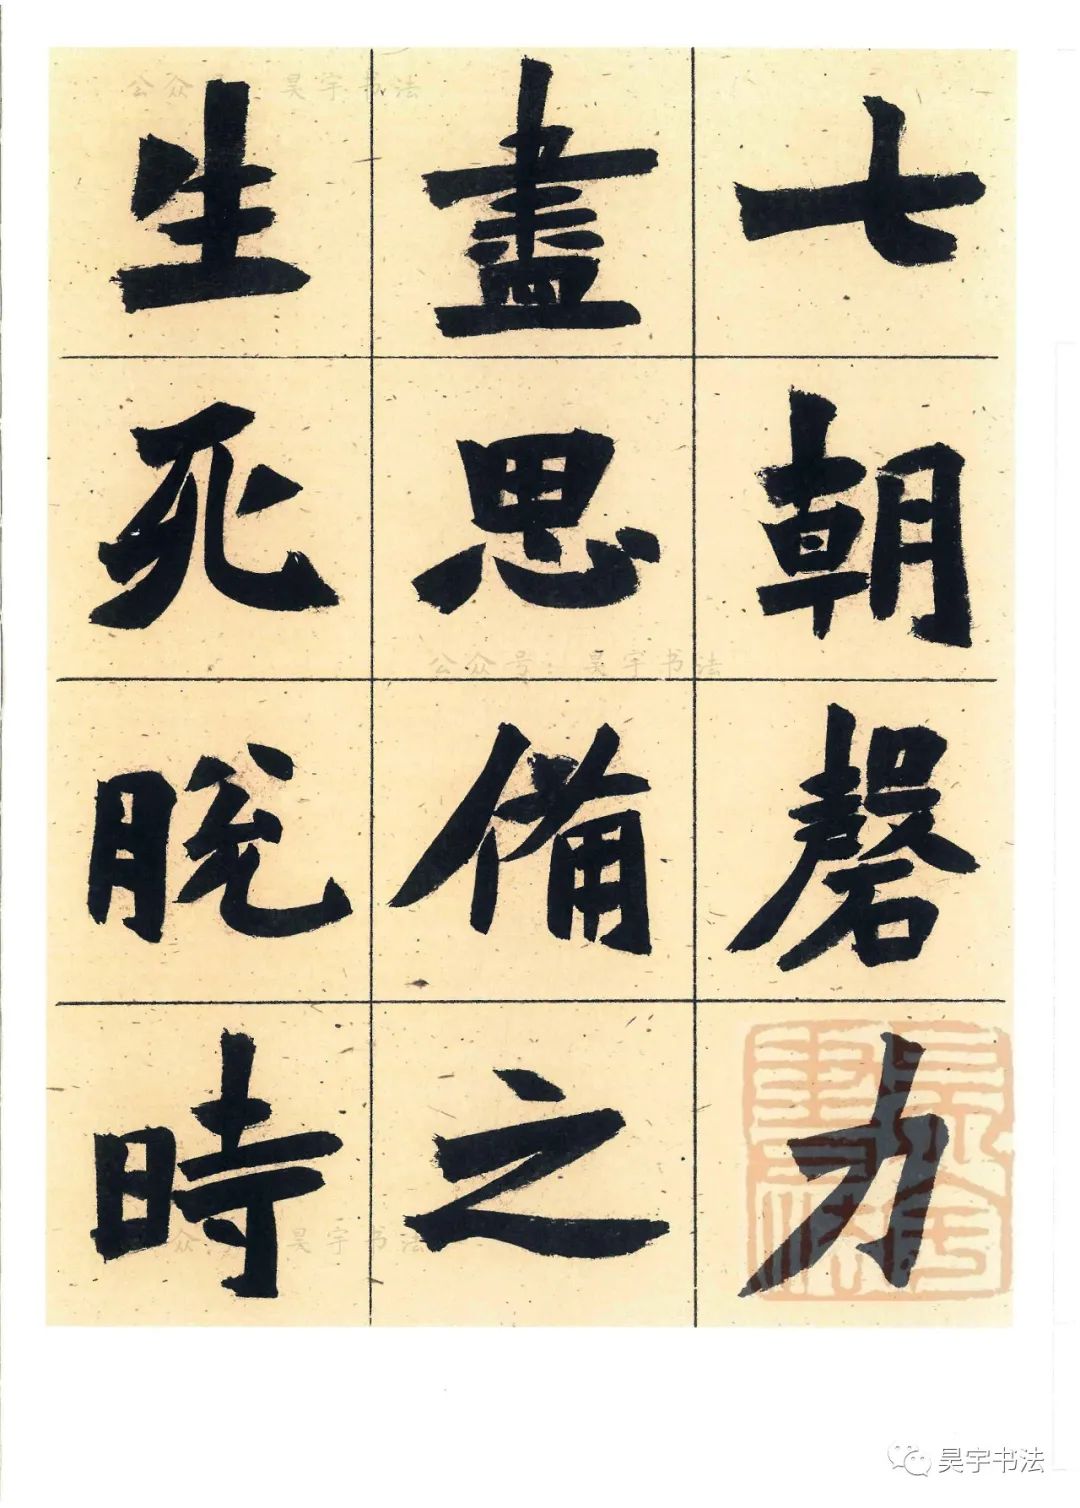 七朝磬力
盡思備之
生死脫時
公众号:昊宇书法
昊宇书法